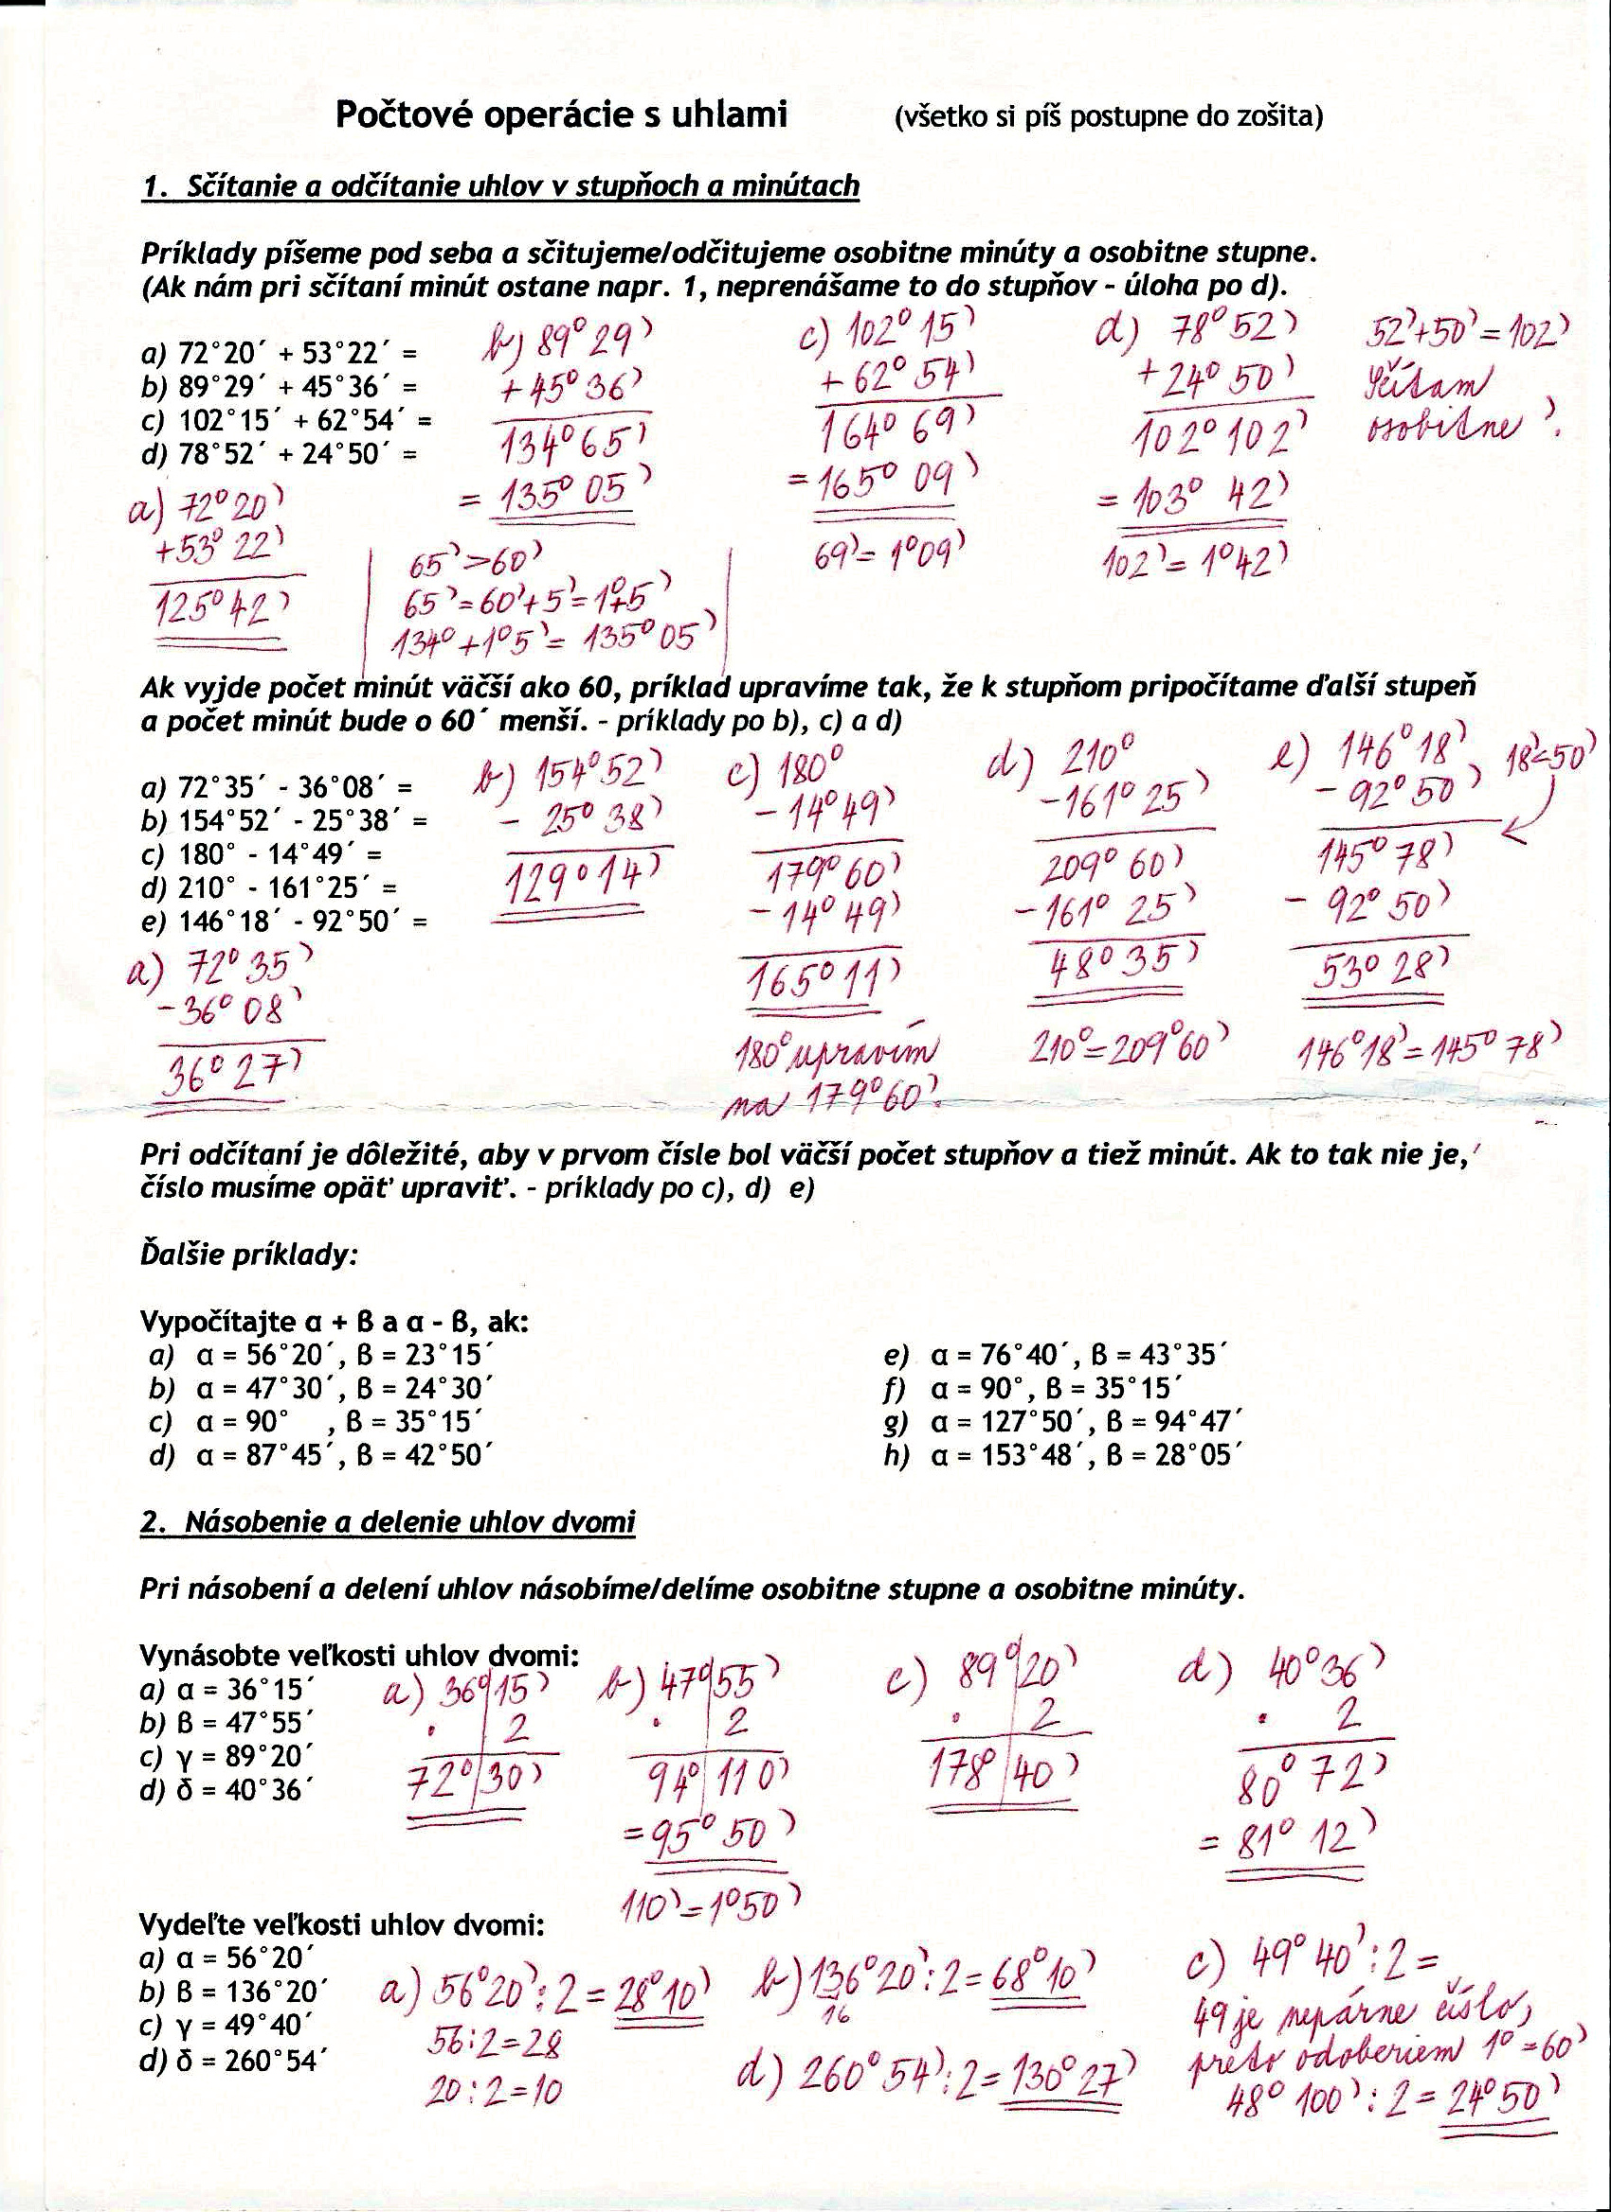 Počtové operácie s uhlami (všetko si píš postupne do zošita)
1. Sčítanie a odčítanie uhlov v stupňoch a minútach
Príklady píšeme pod seba a sčitujeme/odčitujeme osobitne minúty a osobitne stupne.
(Ak nám pri sčítaní minút ostane napr. 1, neprenášame to do stupňov - úloha po d).
a) 72°20´ + 53°22´ =
b) 89°29´ + 45°36´ =
c) 102°15´ + 62°54´ =
d) 78°52´ + 24°50´ =
a) 72°20'
+53°22'
125°42'
b) 89°29'
+45°36'
134°65'
= 135°05'
65'>60'
65'=60'+5'=1°+5'
134°+1°5'= 135°05'
c) 102°15'
+ 62°54'
164°69'
= 165°09'
69'= 1°09'
d) 78°52'
+24°50'
102°102'
= 103°42'
102'= 1°42'
52'+50'=102'
Sčítam
osobitne!
Ak vyjde počet minút väčší ako 60, príklad upravíme tak, že k stupňom pripočítame ďalší stupeň
a počet minút bude o 60´ menší. - príklady po b), c) a d)
a) 72°35´ - 36°08´ =
b) 154°52´ - 25°38´ =
c) 180° - 14°49´ =
d) 210° - 161°25´ =
e) 146°18´ - 92°50´ =
a) 72°35'
-36°08'
36°27'
b) 154°52'
- 25°38'
129°14'
c) 180°
- 14°49'
179°60'
- 14°49'
165°11'
180° upravím
na 179°60'.
d) 210°
-161°25'
209°60'
-161°25'
48°35'
210°=209°60'
e) 146°18'
- 92°50'
145°78'
- 92°50'
53°28'
146°18'=145°78'
18'<50'
Pri odčítaní je dôležité, aby v prvom čísle bol väčší počet stupňov a tiež minút. Ak to tak nie je,
číslo musíme opäť upraviť. - príklady po c), d) e)
Ďalšie príklady:
Vypočítajte α + β a α - β, ak:
a) α = 56°20´, β = 23°15´
b) α = 47°30´, β = 24°30´
c) α = 90° , β = 35°15´
d) α = 87°45´, β = 42°50´
e) α = 76°40´, β = 43°35´
f) α = 90°, β = 35°15´
g) α = 127°50´, β = 94°47´
h) α = 153°48´, β = 28°05´
2. Násobenie a delenie uhlov dvomi
Pri násobení a delení uhlov násobíme/delíme osobitne stupne a osobitne minúty.
Vynásobte veľkosti uhlov dvomi:
a) α = 36°15´
b) β = 47°55´
c) γ = 89°20´
d) δ = 40°36´
a) 36°15'
. 2
72°30'
b) 47°55'
. 2
94°110'
=95°50'
110'=1°50'
c) 89°20'
. 2
178°40'
d) 40°36'
. 2
80°72'
= 81°12'
Vydeľte veľkosti uhlov dvomi:
a) α = 56°20´
b) β = 136°20´
c) γ = 49°40´
d) δ = 260°54´
a) 56°20':2=28°10'
56:2=28
20:2=10
b) 136°20':2=68°10'
16
d) 260°54':2=130°27'
c) 49°40':2=
49 je nepárne číslo,
preto odoberiem 1°=60'
48°100':2=24°50'